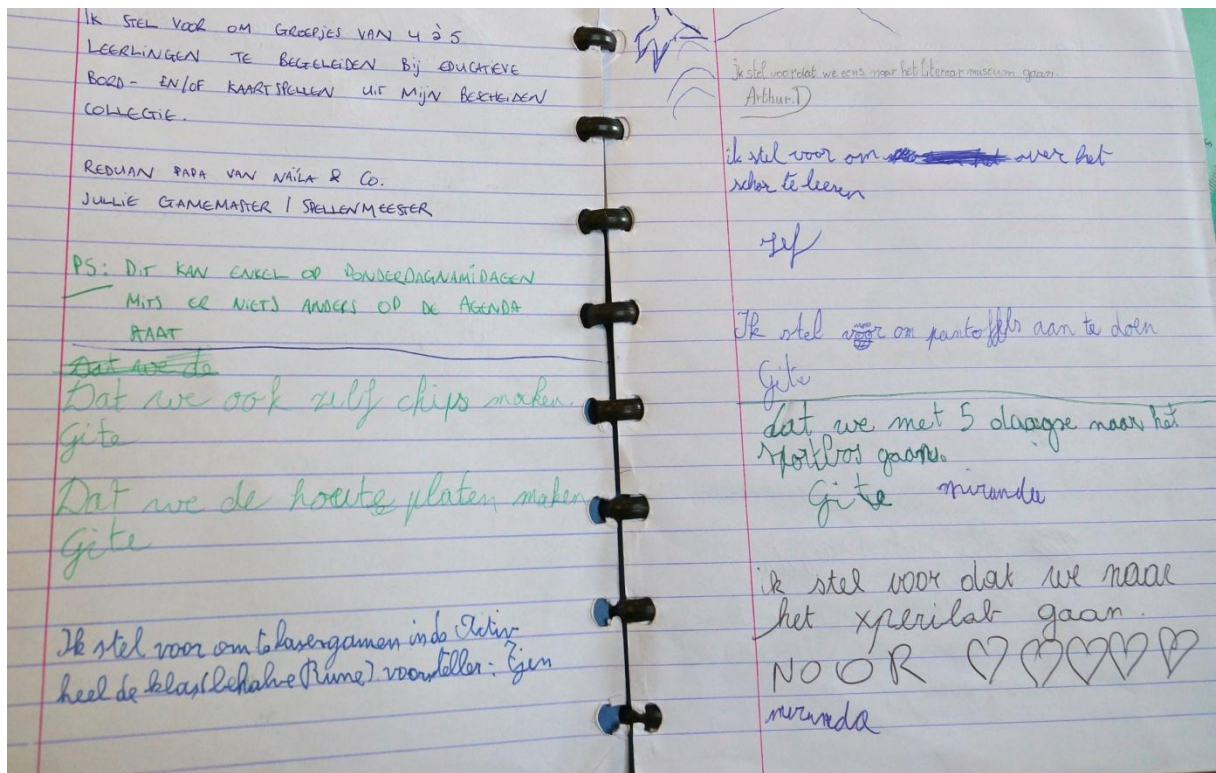 IK STEL VOOR OM GROEPJES VAN 4 à 5
LEERLINGEN TE BEGELEIDEN Bij EDUCATIEVE
BORD- EN/OF KAARTSPELLEN UIT MijN BESCHEIDEN
COLLECTIE.
REDUAN PAPA VAN NAÏLA & CO.
JULLIE GAMEMASTER / SPELLENMEESTER
PS: DIT KAN ENKEL OP DONDERDAGNAMiDAGEN
MITS ER NIETS ANDERS OP DE AGENDA
STAAT
Dat we de
Dat we ook zelf chips maken.
Gite
Dat we de houte platen maken
Gite
Ik stel voor om te lasergamen in de
heel de klas (behalve Rune) voorsteller:
Ik stel voor dat we eens naar het literear museum gaan.
Arthur.D
ik stel voor om over het
schor te leeren
Jef
Ik stel voor om pantoffels aan te doen
Gite
dat we met 5 daagse naar het
sportbos gaan.
Gite miranda
ik stel voor dat we naar
het xperilab gaan.
NOOR ♡♡♡♡♡
miranda